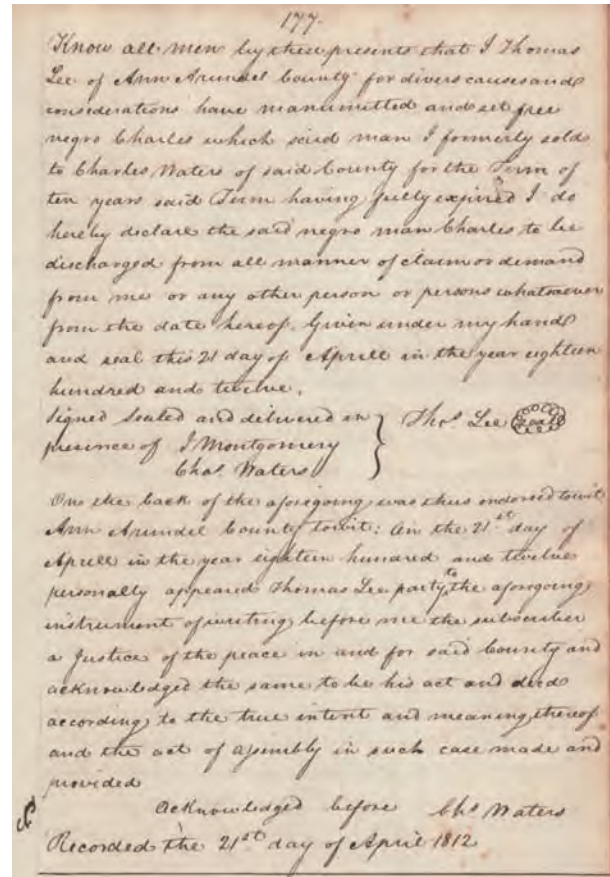 177.
Know all men by these presents that I Thomas
Lee of Ann Arundel County for divers causes and
considerations have manumitted and set free
negro Charles which said man I formerly sold
to Charles Waters of said County for the Term of
ten years said Term having fully expired I do
hereby declare the said negro man Charles to be
discharged from all manner of claim or demand
from me or any other person or persons whatsoever
from the date hereof. Given under my hand
and seal this 21 day of Aprill in the year eighteen
hundred and twelve.
Signed Sealed and delivered in } Thos Lee (seal)
presence of J Montgomery
Chas. Waters
On the back of the aforegoing was thus endorsed towit
Ann Arundel County towit: On the 21st day of
Aprill in the year eighteen hundred and twelve
personally appeared Thomas Lee party to the aforegoing
instrument of writing before me the subscriber
a Justice of the peace in and for said County and
acknowledged the same to be his act and deed
according to the true intent and meaning thereof
and the act of assembly in such case made and
provided
acknowledged before Chs Waters
Recorded the 21st day of April 1812